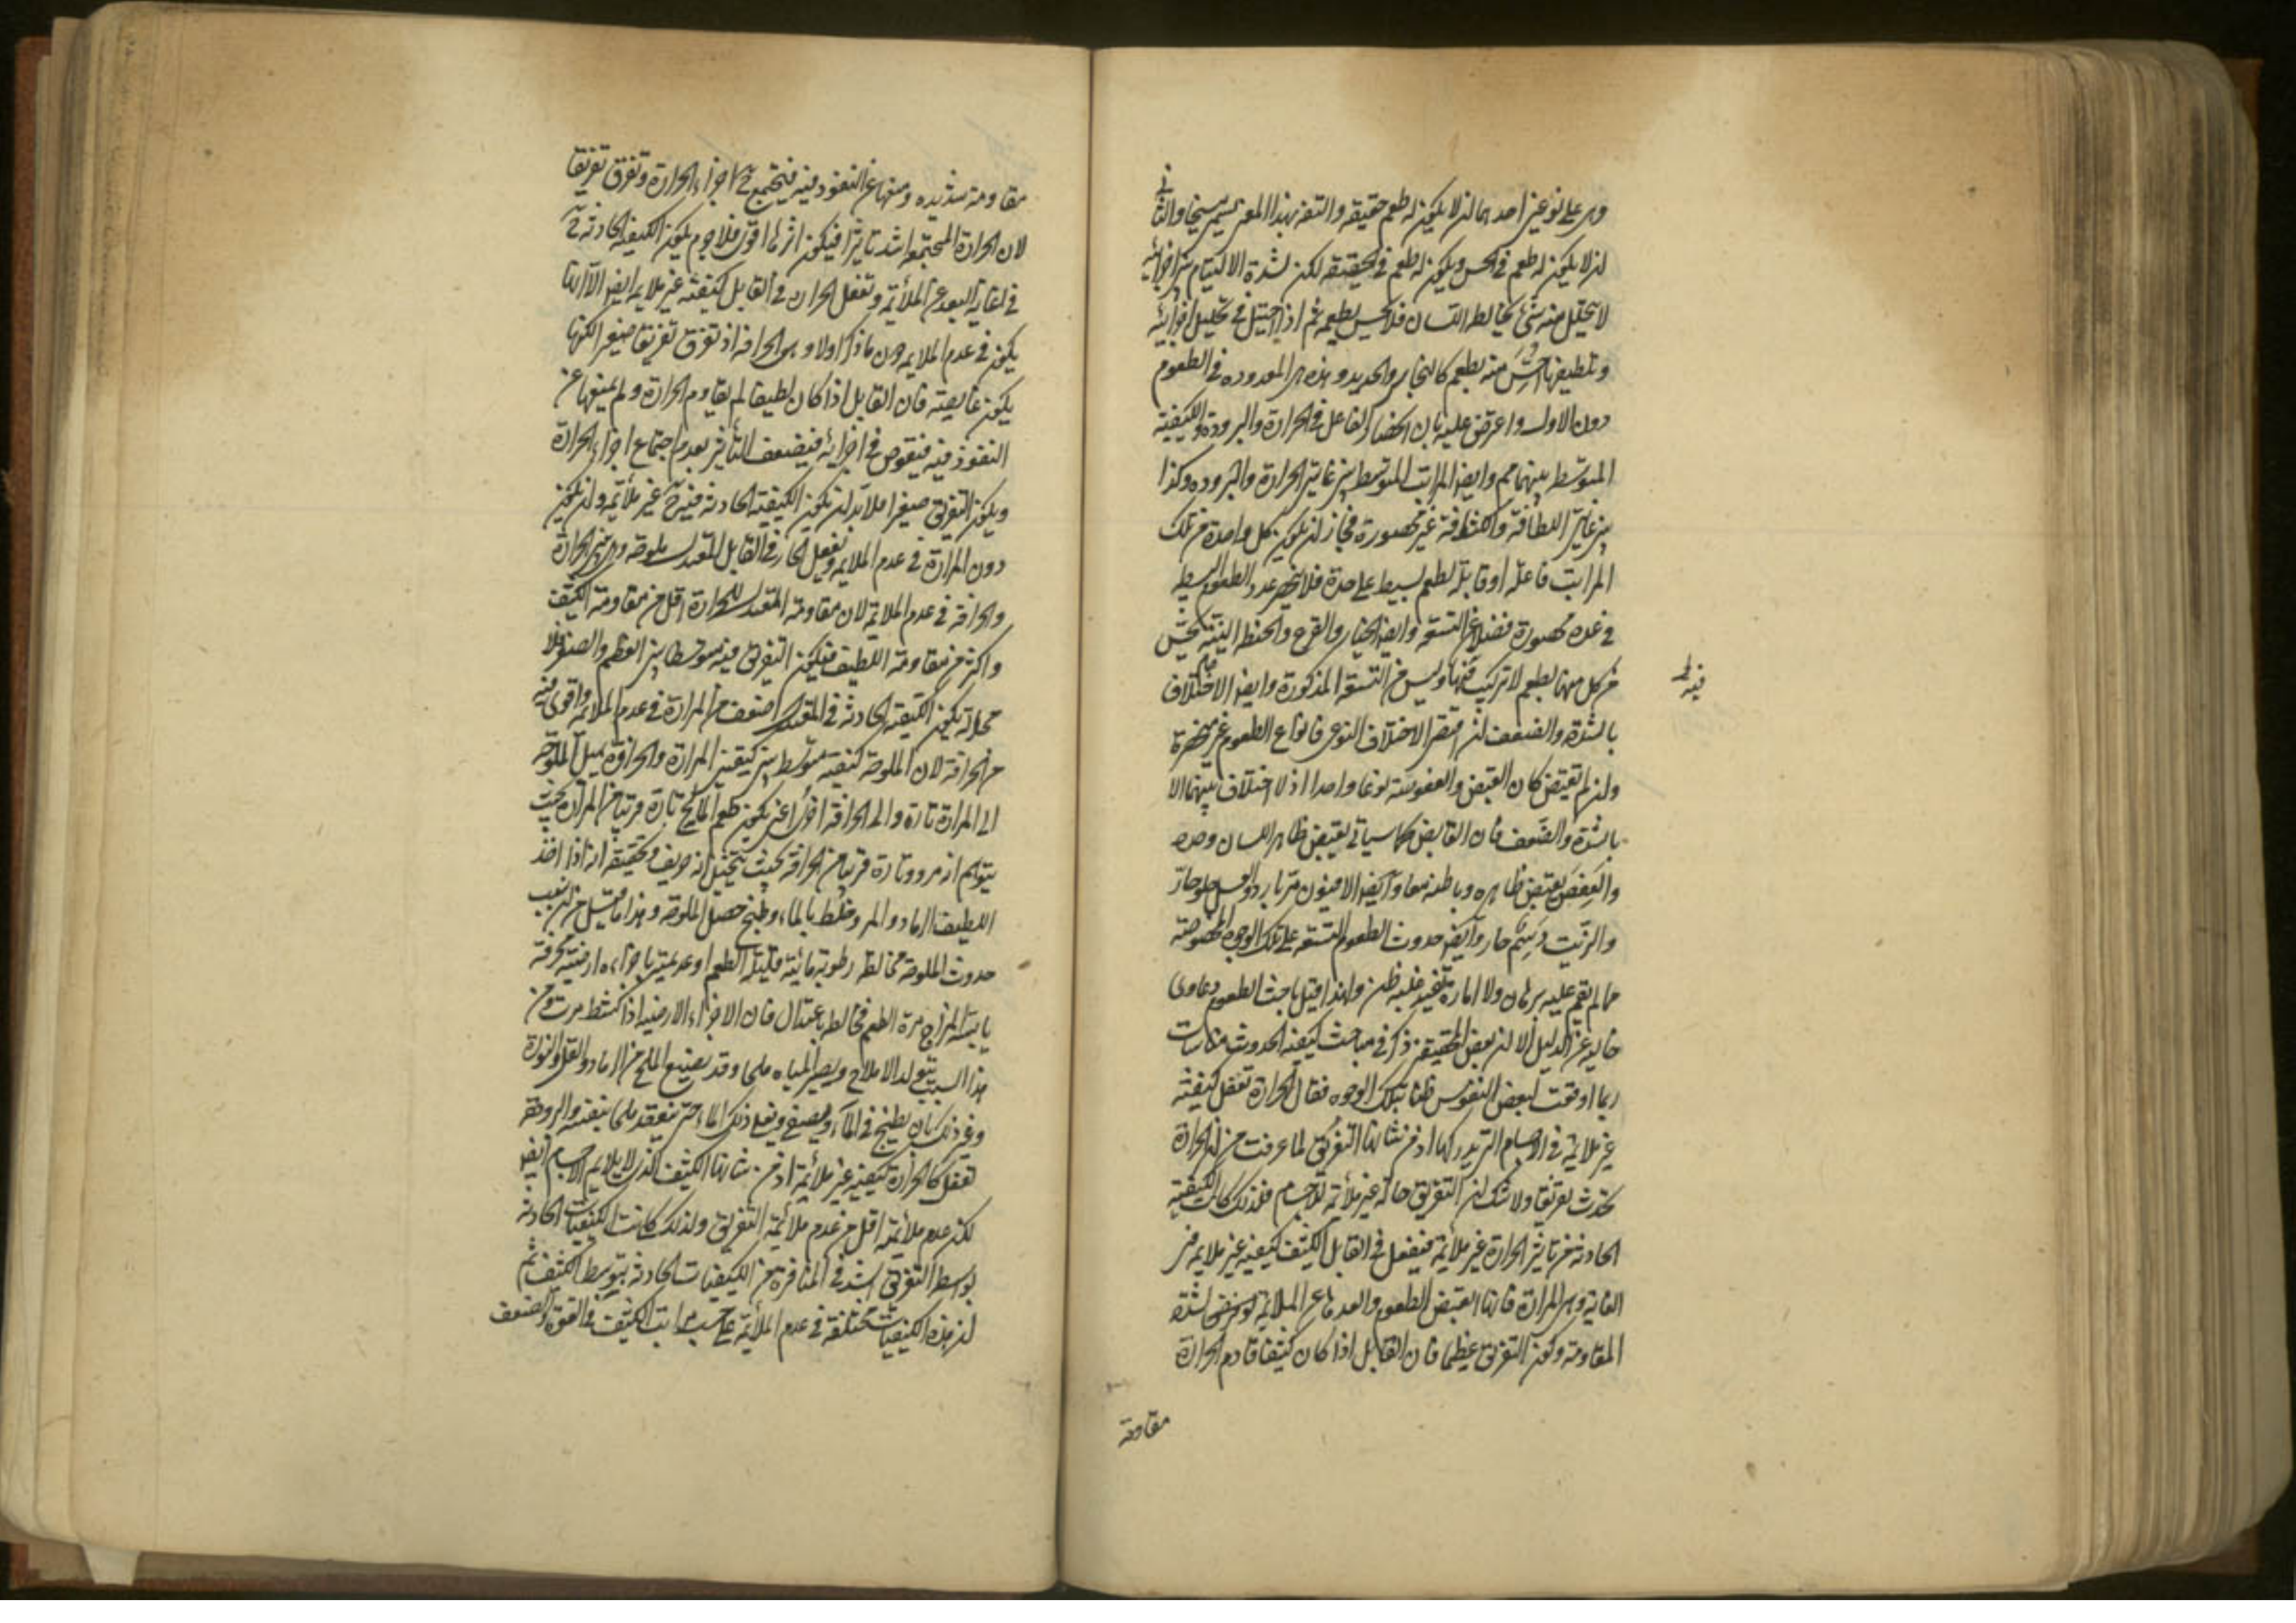 وهى على نوعين احدهما ان لا يكون له طعم حقيقة والتفه بهذا المعنى يسمى مسيخا والثانى
ان لا يكون له طعم فى الحس ويكون له طعم فى الحقيقة لكن لشدة الالتيام بين اجزائه
لا يتحلل منه شئ يخالط اللسان فلا يحس بطعمه ثم اذا احتيل فى تحليل اجزائه
وتلطيفها احس منه بطعم كالنحاس والحديد وهذه هى المعدودة فى الطعوم
دون الاول واعترض عليه بان انحصار الفاعل فى الحرارة والبرودة والكيفية
المتوسطة بينهما مم وايضا المراتب المتوسطة بين غايتى الحرارة والبرودة وكذا
بين غايتى اللطافة والكثافة غير محصورة فجاز ان يكون كل واحدة من تلك
المراتب فاعلة او قابلة لطعم بسيط على حدة فلا ينحصر عدد الطعوم البسيطة
فى عدة محصورة فضلا عن التسعة وايضا الخيار والقرع والحنطة النيئة يحس
من كل منها بطعم لا تركيب فيها وليس من التسعة المذكورة وايضا الاختلاف
فيه
بالشدة والضعف ان اقتضى الاختلاف النوعى فانواع الطعوم غير منحصرة
وان لم يقتض كان القبض والعفوصة نوعا واحدا اذ لا اختلاف بينهما الا
بالشدة والضعف فان القابض كما سياتى يقبض ظاهر اللسان وحده
والعفص يقبض ظاهره وباطنه معا وايضا الافيون مر بارد والعسل حلو حار
والزيت دسم حار وايضا حدوث الطعوم التسعة على تلك الوجوه المخصوصة
مما لم يقم عليه برهان ولا امارة تفيد غلبة ظن ولهذا قيل مباحث الطعوم دعاوى
خالية عن الدليل الا ان بعض المحققين ذكر فى مباحث كيفية الحدوث مناسبات
ربما اوقعت لبعض النفوس ظنا بتلك الوجوه فقال الحرارة تفعل كيفية
غير ملائمة فى الاجسام التى يدركها اذ من شانها التفريق لما عرفت من ان الحرارة
تحدث تفريقا ولا شك ان التفريق حالة غير ملائمة للاجسام فلذلك كانت الكيفية
الحادثة من تاثير الحرارة غير ملائمة فيفعل فى القابل الكثيف كيفية غير ملايمة فى
الغاية وهى المرارة فانها ابغض الطعوم وابعدها عن الملايمة لشدة
المقاومة وكون التفريق عظيما فان القابل اذا كان كثيفا قاوم الحرارة
مقاومة
مقاومة شديدة ومنعها عن النفوذ فيه فيجتمع ح اجزاء الحرارة وتفرق تفريقا
لان الحرارة المجتمعة اشد تاثيرا فيكون اثرها اقوى فلا جرم يكون الكيفية الحادثة ح
فى غاية البعد عن الملائمة وتفعل الحرارة فى القابل كيفية غير ملايمة ايضا الا انها
يكون فى عدم الملايمة دون ما ذكر اولا وهو الحرافة اذ تفرق تفريقا صغيرا لكنها
يكون غايصة فان القابل اذا كان لطيفا لم يقاوم الحرارة ولم يمنعها عن
النفوذ فيه فيغوص فى اجزائه فيضعف التأثير بعدم اجتماع اجزاء الحرارة
ويكون التفريق صغيرا فلا بد ان يكون الكيفية الحادثة فيه ح غير ملائمة وان يكون
دون المرارة فى عدم الملايمة ويفعل الحار فى القابل المعتدل ملوحة وهى بين المرارة
والحرافة فى عدم الملائمة لان مقاومة المعتدل للحرارة اقل من مقاومة الكثيف
واكثر من مقاومة اللطيف فيكون التفريق فيه متوسطا بين العظم والصغر فلا
محالة يكون الكيفية الحادثة فى المعتدل اضعف من المرارة فى عدم الملائمة واقوى فيه
من الحرافة لان الملوحة كيفية متوسطة بين كيفيتى المرارة والحرافة يميل الملوحة
الى المرارة تارة والى الحرافة اخرى اعنى يكون طعم المالح تارة قريبا من المرارة بحيث
يتوهم انه مر وتارة قريبا من الحرافة بحيث يتخيل انه حريف وتحقيقه انه اذا اخذ
اللطيف الرماد والمر وخلط بالماء وطبخ حصل الملوحة وهذا ما قيل من ان سبب
حدوث الملوحة مخالطة رطوبة مائية قليلة الطعم او عديمته باجزاء ارضية محرقة
يابسة المزاج مرة الطعم مخالطة باعتدال فان الاجزاء الارضية اذا كثرت مررت ومن
هذا السبب يتولد الاملاح ويصير المياه ملحا وقد يصنع الملح من الرماد والقلى والنورة
وغير ذلك بان يطبخ فى الماء ويصفى ويغلى ذلك الماء حتى ينعقد ملحا بنفسه والبرودة
تفعل كالحرارة كيفية غير ملائمة اذ من شانها التكثيف الذى لا يلايم الاجسام ايضا
لكن عدم ملائمته اقل من عدم ملائمة التفريق ولذلك كانت الكيفيات الحادثة
بواسطة التفريق اشد فى المنافرة من الكيفيات الحادثة بتوسط التكثيف ثم
ان هذه الكيفيات مختلفة فى عدم الملائمة على حسب مراتب التكثيف فى القوة والضعف